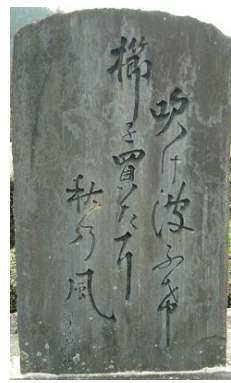 吹け波ふ希
櫛を買たり
秋乃風